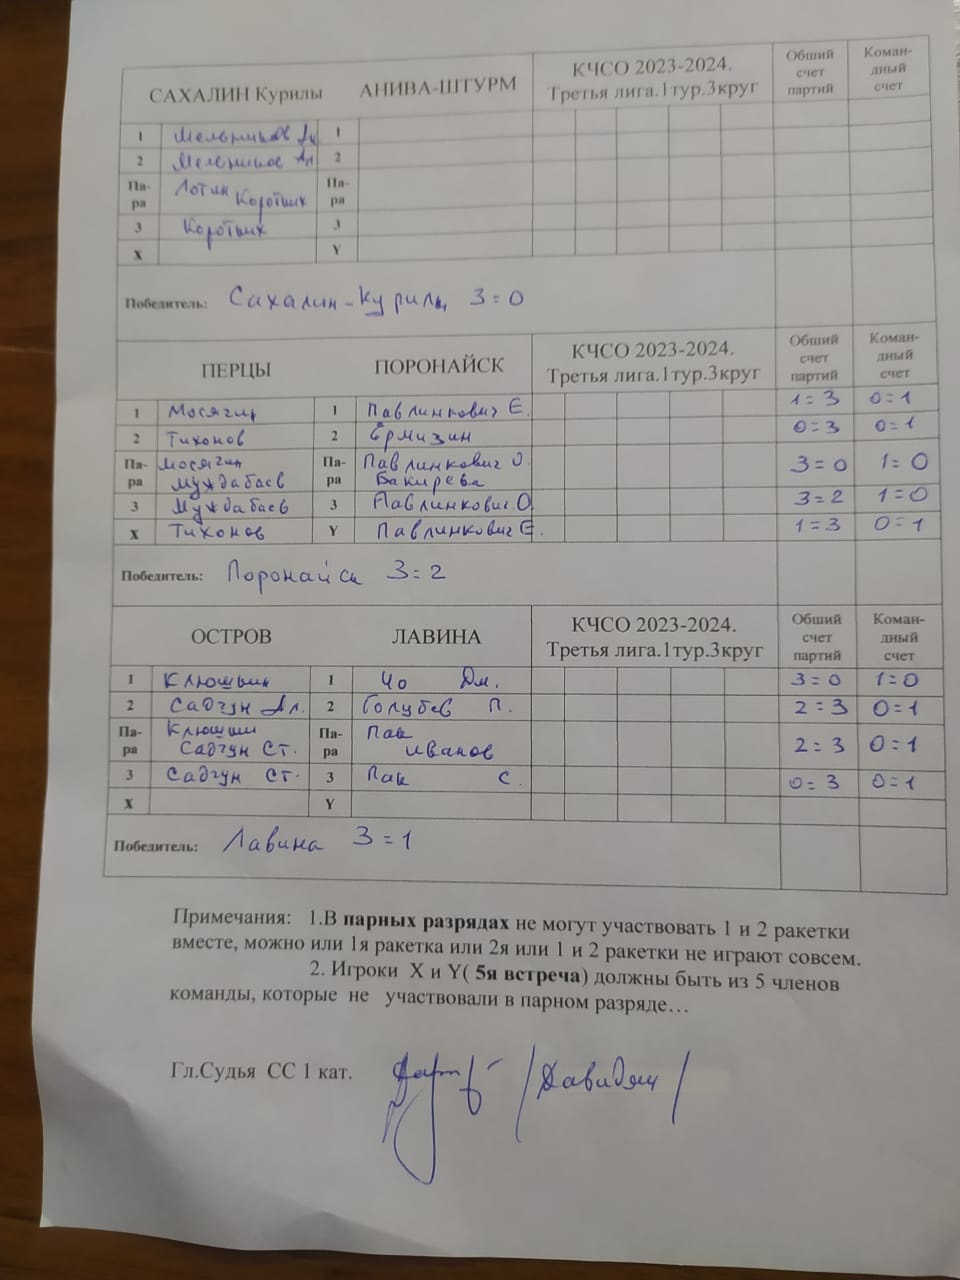 САХАЛИН Курилы АНИВА-ШТУРМ КЧСО 2023-2024. Третья лига.1тур.3круг Общий счет партий Коман-дный счет
1 Мельников Ди 1
2 Мельников Ал 2
Па-ра Лотин Коротких Па-ра
3 Коротких 3
X Y
Победитель: Сахалин-Курилы 3=0
ПЕРЦЫ ПОРОНАЙСК КЧСО 2023-2024. Третья лига.1тур.3круг Общий счет партий Коман-дный счет
1 Мосягин 1 Павлинкович Е. 1=3 0=1
2 Тихонов 2 Ермизин 0=3 0=1
Па-ра Мосягин Муждабаев Па-ра Павлинкович О Бакирева 3=0 1=0
3 Муждабаев 3 Павлинкович О 3=2 1=0
X Тихонов Y Павлинкович Е. 1=3 0=1
Победитель: Поронайск 3=2
ОСТРОВ ЛАВИНА КЧСО 2023-2024. Третья лига.1тур.3круг Общий счет партий Коман-дный счет
1 Клюшин 1 Чо Дм. 3=0 1=0
2 Садгун Ал. 2 Голубев П. 2=3 0=1
Па-ра Клюшин Садгун Ст. Па-ра Пак Иванов 2=3 0=1
3 Садгун Ст. 3 Пак С. 0=3 0=1
X Y
Победитель: Лавина 3=1
Примечания: 1.В парных разрядах не могут участвовать 1 и 2 ракетки
вместе, можно или 1я ракетка или 2я или 1 и 2 ракетки не играют совсем.
2. Игроки X и Y( 5я встреча) должны быть из 5 членов
команды, которые не участвовали в парном разряде…
Гл.Судья СС 1 кат. /Давидян/